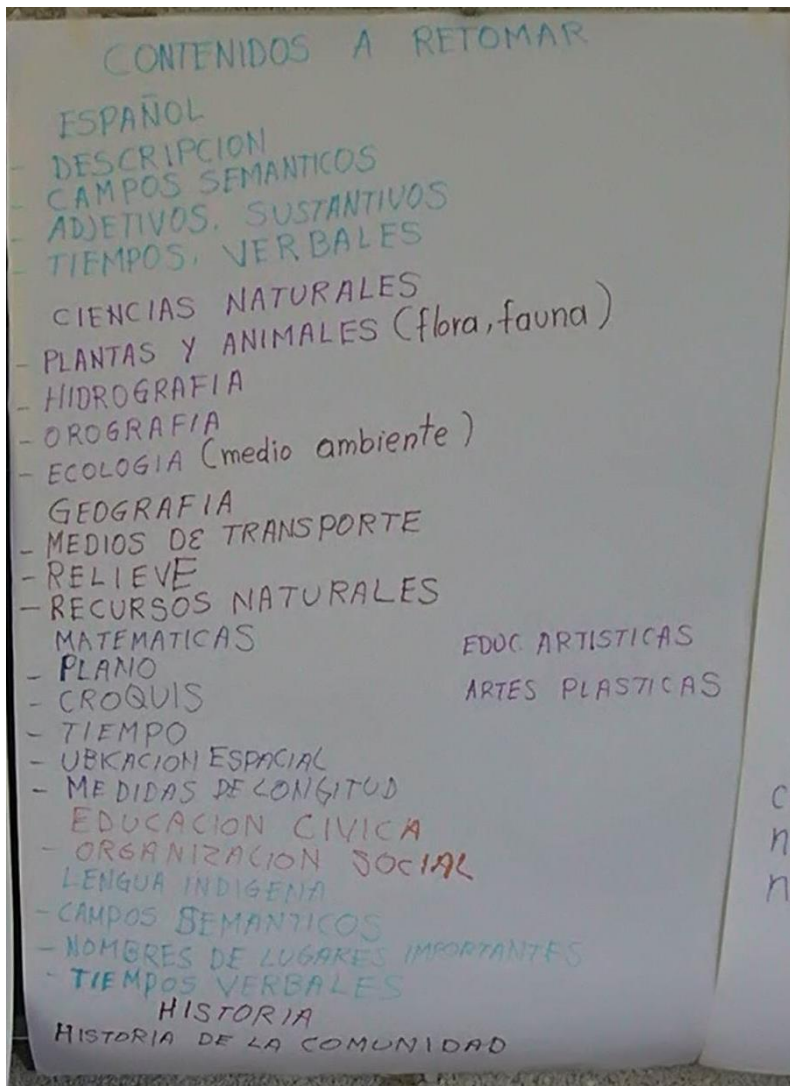 CONTENIDOS A RETOMAR
ESPAÑOL
- DESCRIPCION
- CAMPOS SEMANTICOS
- ADJETIVOS. SUSTANTIVOS
- TIEMPOS. VERBALES
CIENCIAS NATURALES
- PLANTAS Y ANIMALES (flora, fauna)
- HIDROGRAFIA
- OROGRAFIA
- ECOLOGIA (medio ambiente)
GEOGRAFIA
- MEDIOS DE TRANSPORTE
- RELIEVE
- RECURSOS NATURALES
MATEMATICAS
- PLANO
- CROQUIS
- TIEMPO
- UBICACION ESPACIAL
- MEDIDAS DE LONGITUD
EDUCACION CIVICA
- ORGANIZACION SOCIAL
LENGUA INDIGENA
- CAMPOS SEMANTICOS
- NOMBRES DE LUGARES IMPORTANTES
- TIEMPOS VERBALES
HISTORIA
HISTORIA DE LA COMUNIDAD
EDUC. ARTISTICAS
ARTES PLASTICAS